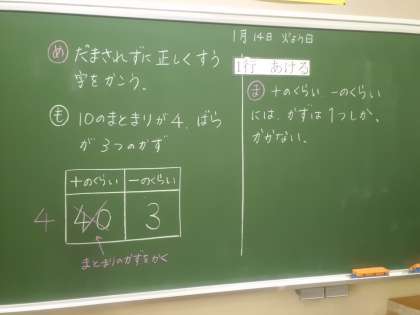 め だまされずに正しくすう
字をかこう。
も 10のまとまりが4、ばら
が3つのかず
十のくらい 一のくらい
4 40 3
まとまりのかずをかく
1月14日 火よう日
1行 あける
ま 十のくらい 一のくらい
には、かずは1つしか、
かかない。